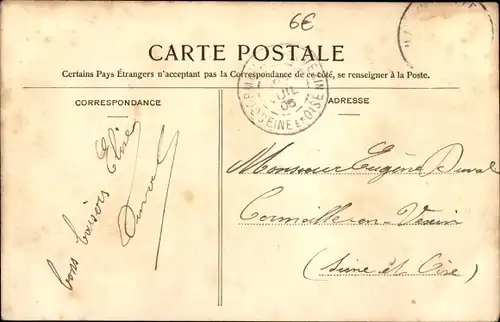 6€
CARTE POSTALE
Certains Pays Étrangers n'acceptant pas la Correspondance de ce côté, se renseigner à la Poste.
CORRESPONDANCE
ADRESSE
SEINE ET OISE
05
bons baisers Elise
Duval
Monsieur Eugène Duval
Cormeille-en-Vexin
(Seine et Oise)